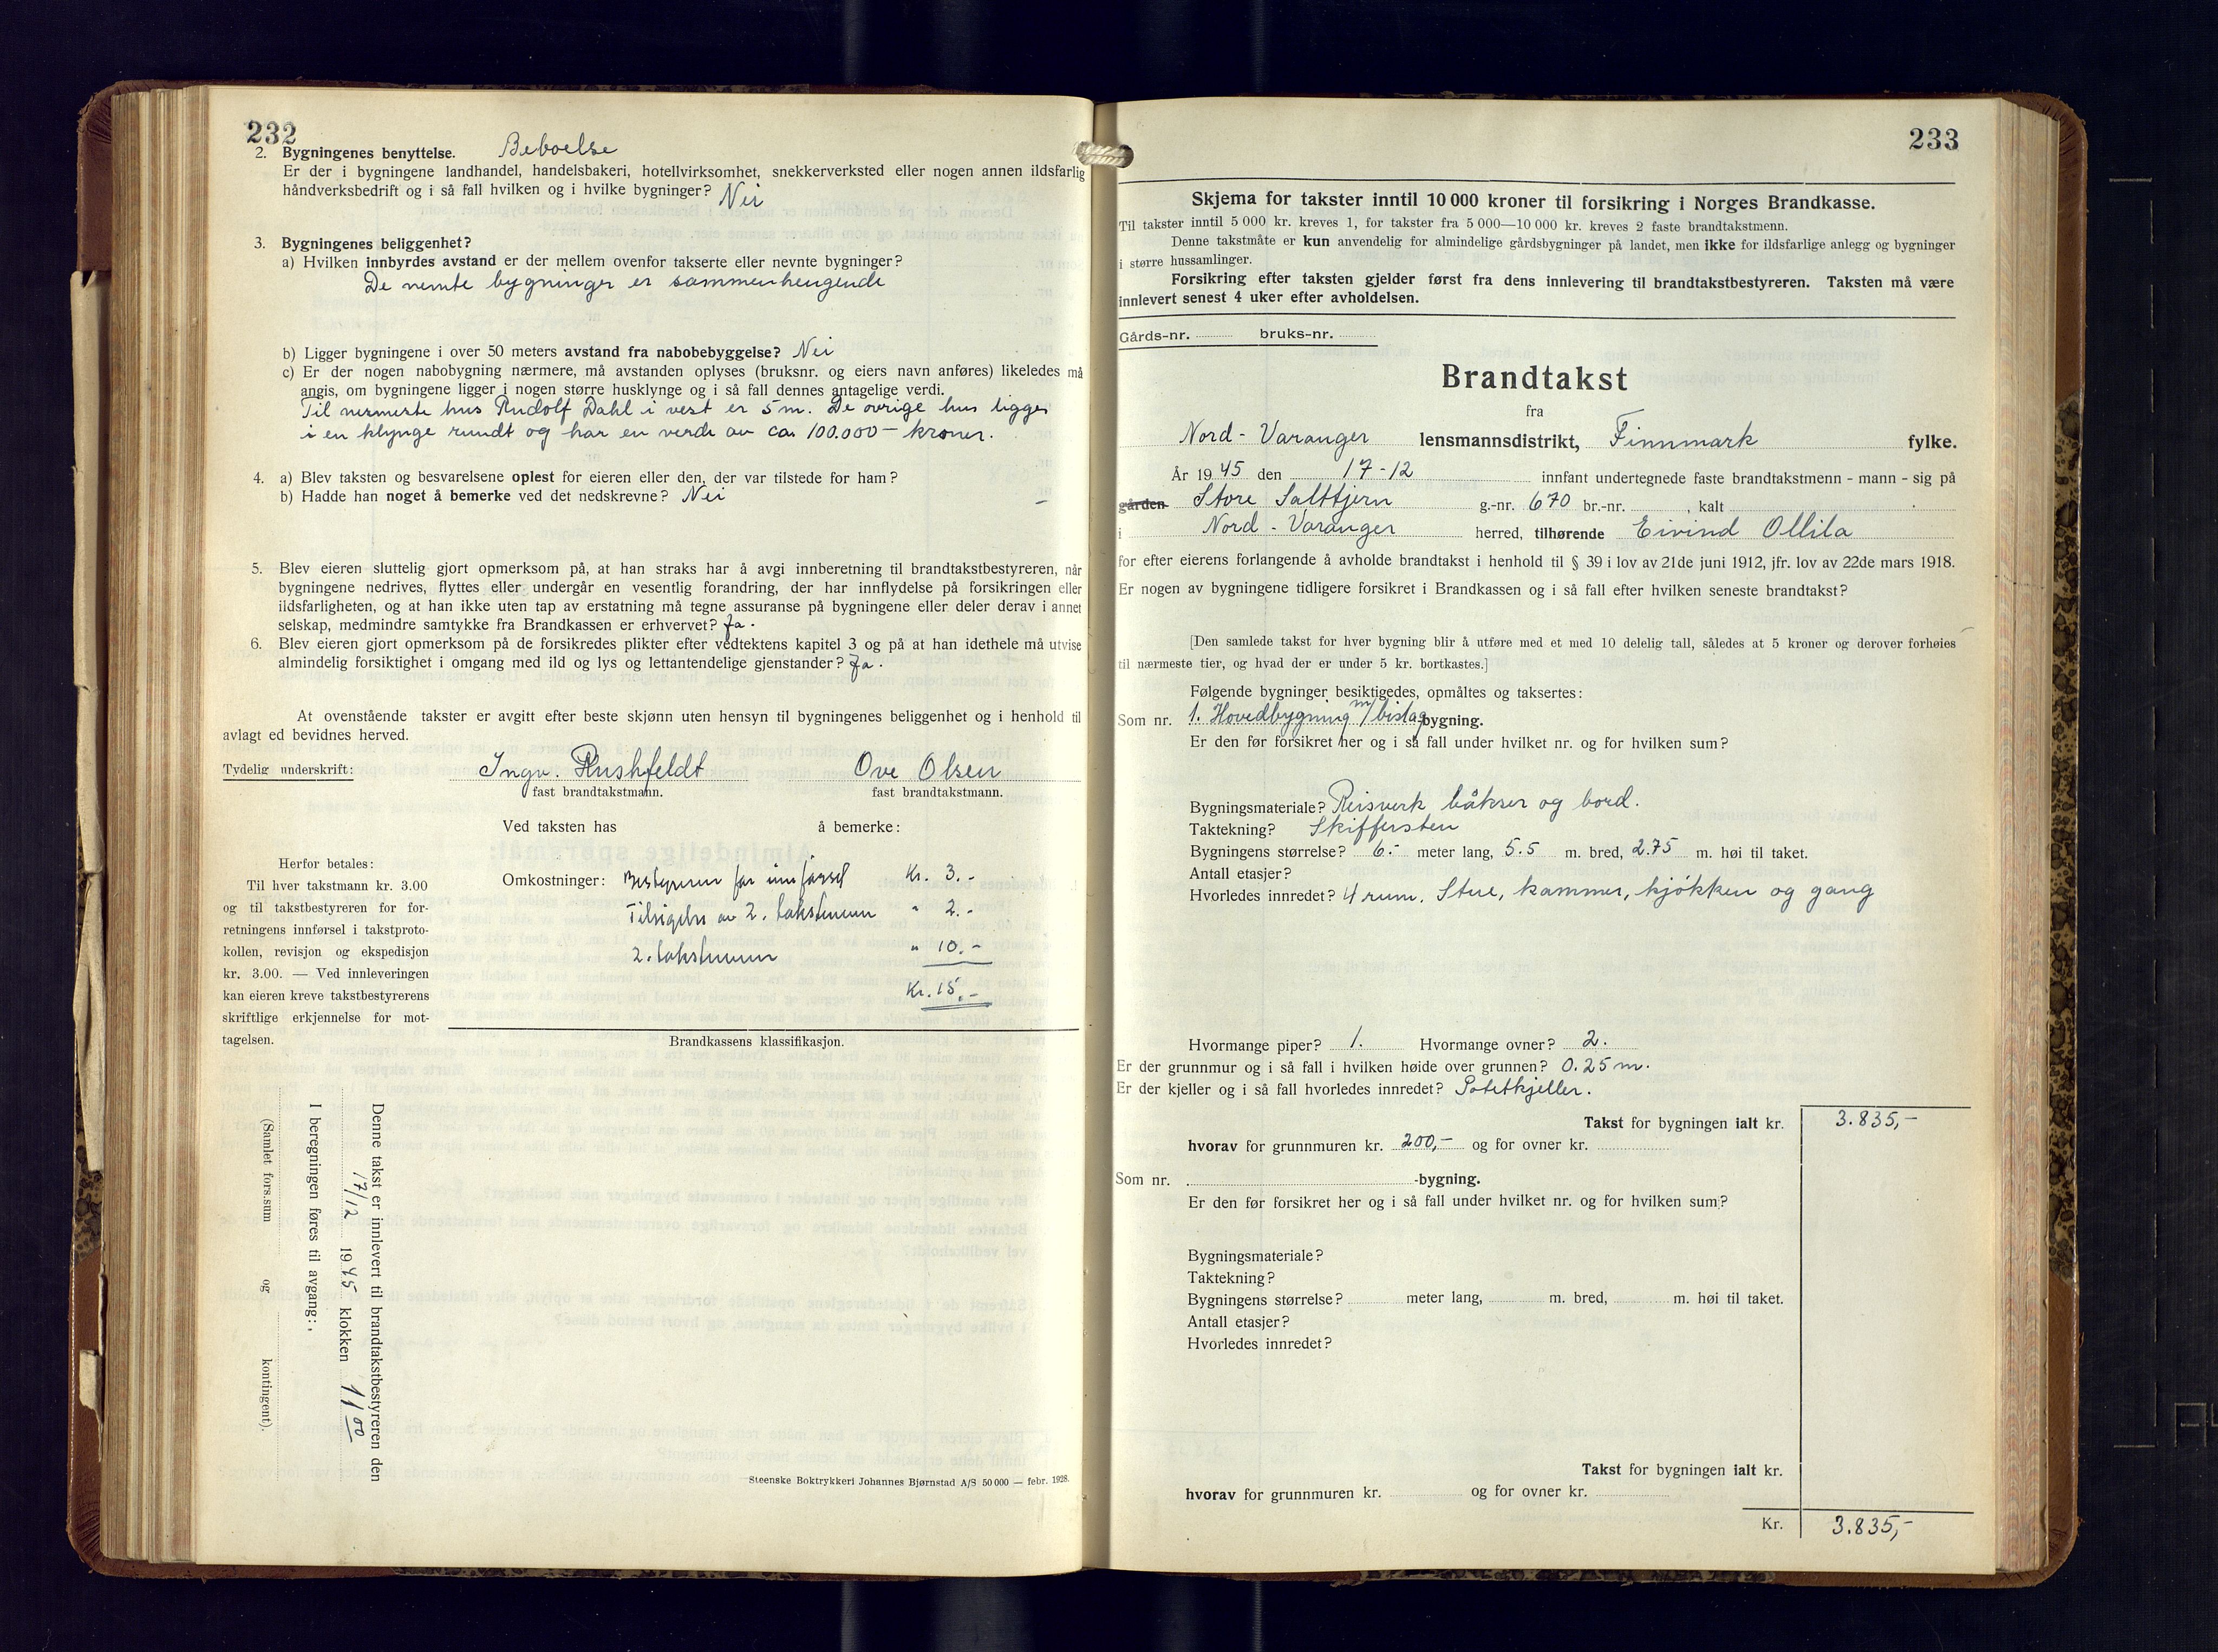 232
2. Bygningenes benyttelse. Beboelse
Er der i bygningene landhandel, handelsbakeri, hotellvirksomhet, snekkerverksted eller nogen annen ildsfarlig
håndverksbedrift og i så fall hvilken og i hvilke bygninger? Nei
3. Bygningenes beliggenhet?
a) Hvilken innbyrdes avstand er der mellem ovenfor takserte eller nevnte bygninger?
De nemte bygninger er sammenhengende
b) Ligger bygningene i over 50 meters avstand fra nabobebyggelse? Nei
c) Er der nogen nabobygning nærmere, må avstanden oplyses (bruksnr. og eiers navn anføres) likeledes må
angis, om bygningene ligger i nogen større husklynge og i så fall dennes antagelige verdi.
Til nermeste hus Rudolf Dahl i vest er 5 m. De øvrige hus ligger
i en klynge rundt og har en verdi av ca. 100.000 - kroner.
4. a) Blev taksten og besvarelsene oplest for eieren eller den, der var tilstede for ham?
b) Hadde han noget å bemerke ved det nedskrevne? Nei -
5. Blev eieren sluttelig gjort opmerksom på, at han straks har å avgi innberetning til brandtakstbestyreren, når
bygningene nedrives, flyttes eller undergår en vesentlig forandring, der har innflydelse på forsikringen eller
ildsfarligheten, og at han ikke uten tap av erstatning må tegne assuranse på bygningene eller deler derav i annet
selskap, medmindre samtykke fra Brandkassen er erhvervet? Ja.
6. Blev eieren gjort opmerksom på de forsikredes plikter efter vedtektens kapitel 3 og på at han idethele må utvise
almindelig forsiktighet i omgang med ild og lys og lettantendelige gjenstander? Ja.
At ovenstående takster er avgitt efter beste skjønn uten hensyn til bygningenes beliggenhet og i henhold til
avlagt ed bevidnes herved.
Tydelig underskrift: Ingv. Rushfeldt Ove Olsen
fast brandtakstmann. fast brandtakstmann.
Ved taksten has å bemerke:
Herfor betales:
Til hver takstmann kr. 3.00
og til takstbestyreren for for-
retningens innførsel i takstproto-
kollen, revisjon og ekspedisjon
kr. 3.00. — Ved innleveringen
kan eieren kreve takstbestyrerens
skriftlige erkjennelse for mot-
tagelsen.
Omkostninger: Bestyreren for innførsel Kr. 3.-
Tilsigelse av 2. takstmenn " 2.-
2. takstmenn " 10.-
Kr. 15.-
Brandkassens klassifikasjon.
Denne takst er innlevert til brandtakstbestyreren den
17/12 1945 klokken 11 00
I beregningen føres til avgang:
(Samlet fors.sum og kontingent).
Steenske Boktrykkeri Johannes Bjørnstad A/S 50 000 — febr. 1928.
233
Skjema for takster inntil 10 000 kroner til forsikring i Norges Brandkasse.
Til takster inntil 5 000 kr. kreves 1, for takster fra 5 000—10 000 kr. kreves 2 faste brandtakstmenn.
Denne takstmåte er kun anvendelig for almindelige gårdsbygninger på landet, men ikke for ildsfarlige anlegg og bygninger
i større hussamlinger.
Forsikring efter taksten gjelder først fra dens innlevering til brandtakstbestyreren. Taksten må være
innlevert senest 4 uker efter avholdelsen.
Gårds-nr. bruks-nr.
Brandtakst
fra
Nord-Varanger lensmannsdistrikt, Finnmark fylke.
År 1945 den 17-12 innfant undertegnede faste brandtakstmenn - mann - sig på
gården Store Salttjern g.-nr. 670 br.-nr. , kalt
i Nord-Varanger herred, tilhørende Eivind Ollila
for efter eierens forlangende å avholde brandtakst i henhold til § 39 i lov av 21de juni 1912, jfr. lov av 22de mars 1918.
Er nogen av bygningene tidligere forsikret i Brandkassen og i så fall efter hvilken seneste brandtakst?
[Den samlede takst for hver bygning blir å utføre med et med 10 delelig tall, således at 5 kroner og derover forhøies
til nærmeste tier, og hvad der er under 5 kr. bortkastes.]
Følgende bygninger besiktigedes, opmåltes og taksertes:
Som nr. 1. Hovedbygning m/bislag bygning.
Er den før forsikret her og i så fall under hvilket nr. og for hvilken sum?
Bygningsmateriale? Reisverk båkser og bord.
Taktekning? Skiffersten
Bygningens størrelse? 6.- meter lang, 5.5 m. bred, 2.75 m. høi til taket.
Antall etasjer?
Hvorledes innredet? 4 rum. Stue, kammer, kjøkken og gang
Hvormange piper? 1. Hvormange ovner? 2.
Er der grunnmur og i så fall i hvilken høide over grunnen? 0.25 m.
Er der kjeller og i så fall hvorledes innredet? Potetkjeller.
Takst for bygningen ialt kr. 3.835,-
hvorav for grunnmuren kr. 200,- og for ovner kr.
Som nr. -bygning.
Er den før forsikret her og i så fall under hvilket nr. og for hvilken sum?
Bygningsmateriale?
Taktekning?
Bygningens størrelse? meter lang, m. bred, m. høi til taket.
Antall etasjer?
Hvorledes innredet?
Takst for bygningen ialt kr.
hvorav for grunnmuren kr. og for ovner kr.
Kr. 3.835,-